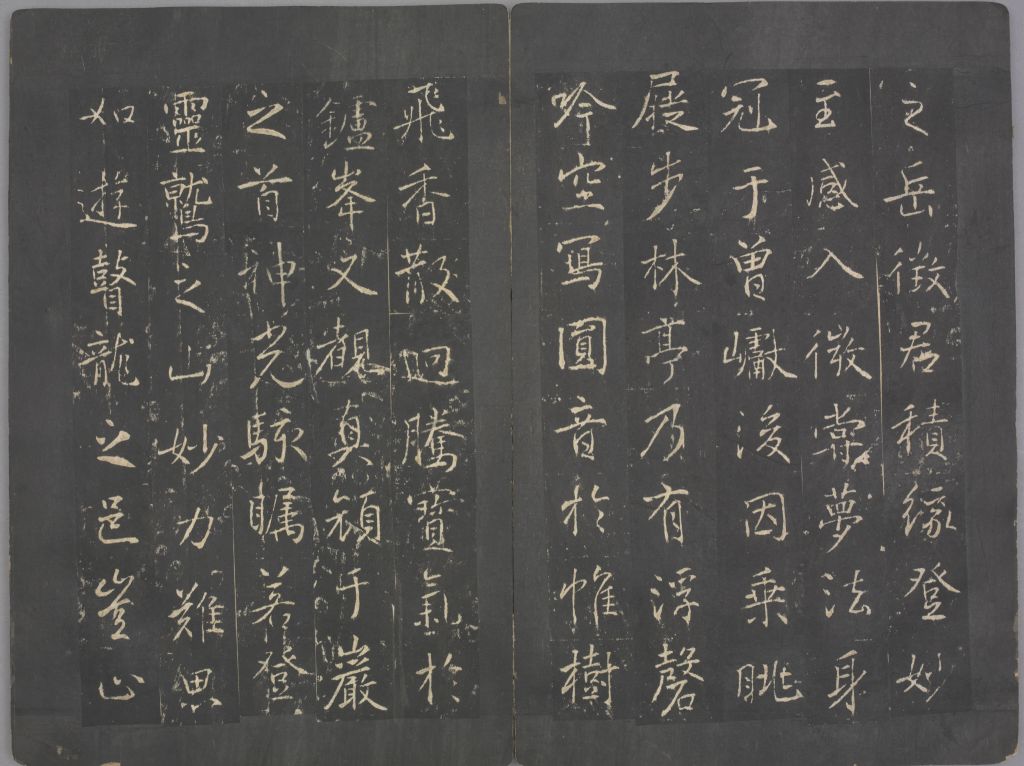 之岳徵君積緣登妙
至感入微嘗夢法身
冠于曾巘後因乘眺
展步林亭乃有浮磬
吟空寫圓音於帷樹
飛香散迥騰寶氣於
鑪峯又覩真顏于巖
之首神光駭矚若登
靈鷲之山妙力難思
如遊瞽龍之邑豈止